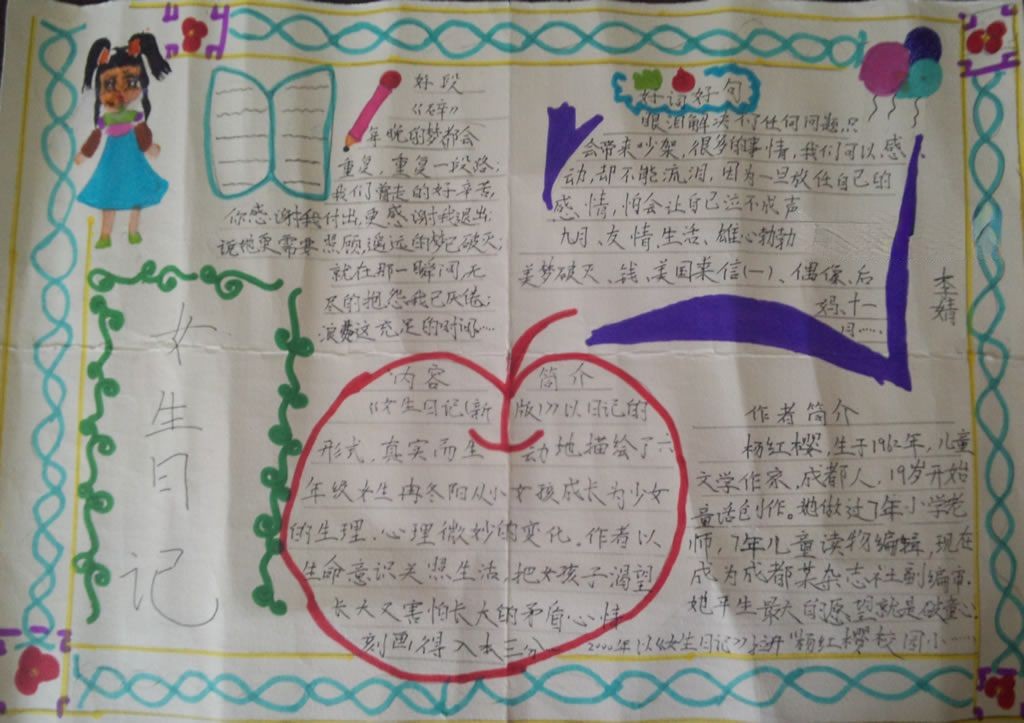 好段
《碎》
年晚的梦都会
重复，重复一段路；
我们曾走的好辛苦，
你感谢我付出，更感谢我退出；
说她更需要照顾，遥远的梦已破灭；
就在那一瞬间，无
尽的抱怨我已厌倦；
浪费这充足的时间……
好词好句
眼泪解决不了任何问题，只
会带来吵架，很多的事情，我们可以感
动，却不能流泪，因为一旦放任自己的
感情，怕会让自己泣不成声
九月、友情、生活、雄心勃勃
美梦破灭、钱、美国来信(一)、偶像、后
妈、十一
月……
李婧
女生日记
内容简介
《女生日记(新版)》以日记的
形式，真实而生动地描绘了六
年级女生冉冬阳从小女孩成长为少女
的生理、心理微妙的变化。作者以
生命意识关照生活，把女孩子渴望
长大又害怕长大的矛盾心情
刻画得入木三分
作者简介
杨红樱，生于1962年，儿童
文学作家，成都人，19岁开始
童话创作。她做过7年小学老
师，7年儿童读物编辑，现在
成为成都某杂志社副编审。
她平生最大的愿望就是破童心
2000年以《女生日记》拉开"杨红樱校园小……